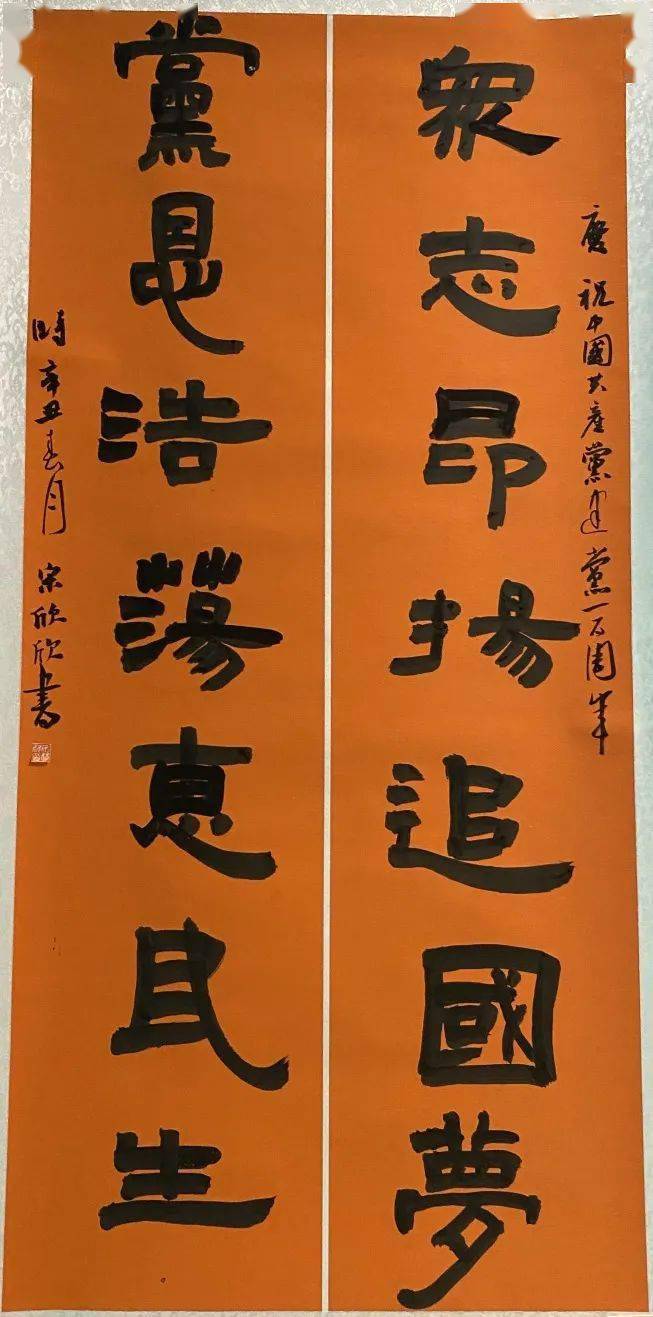 慶祝中國共產黨建黨一百周年
眾志昂揚追國夢
黨恩浩蕩惠民生
時辛丑春月 宋欣欣書